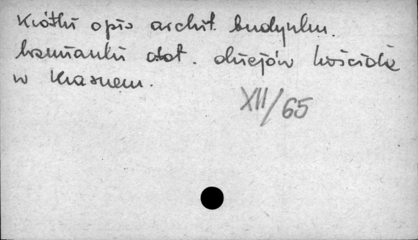 Krótki opis archit. budynku.
Wzmianki dot. dziejów kościoła
w Krasnem.
XII/65